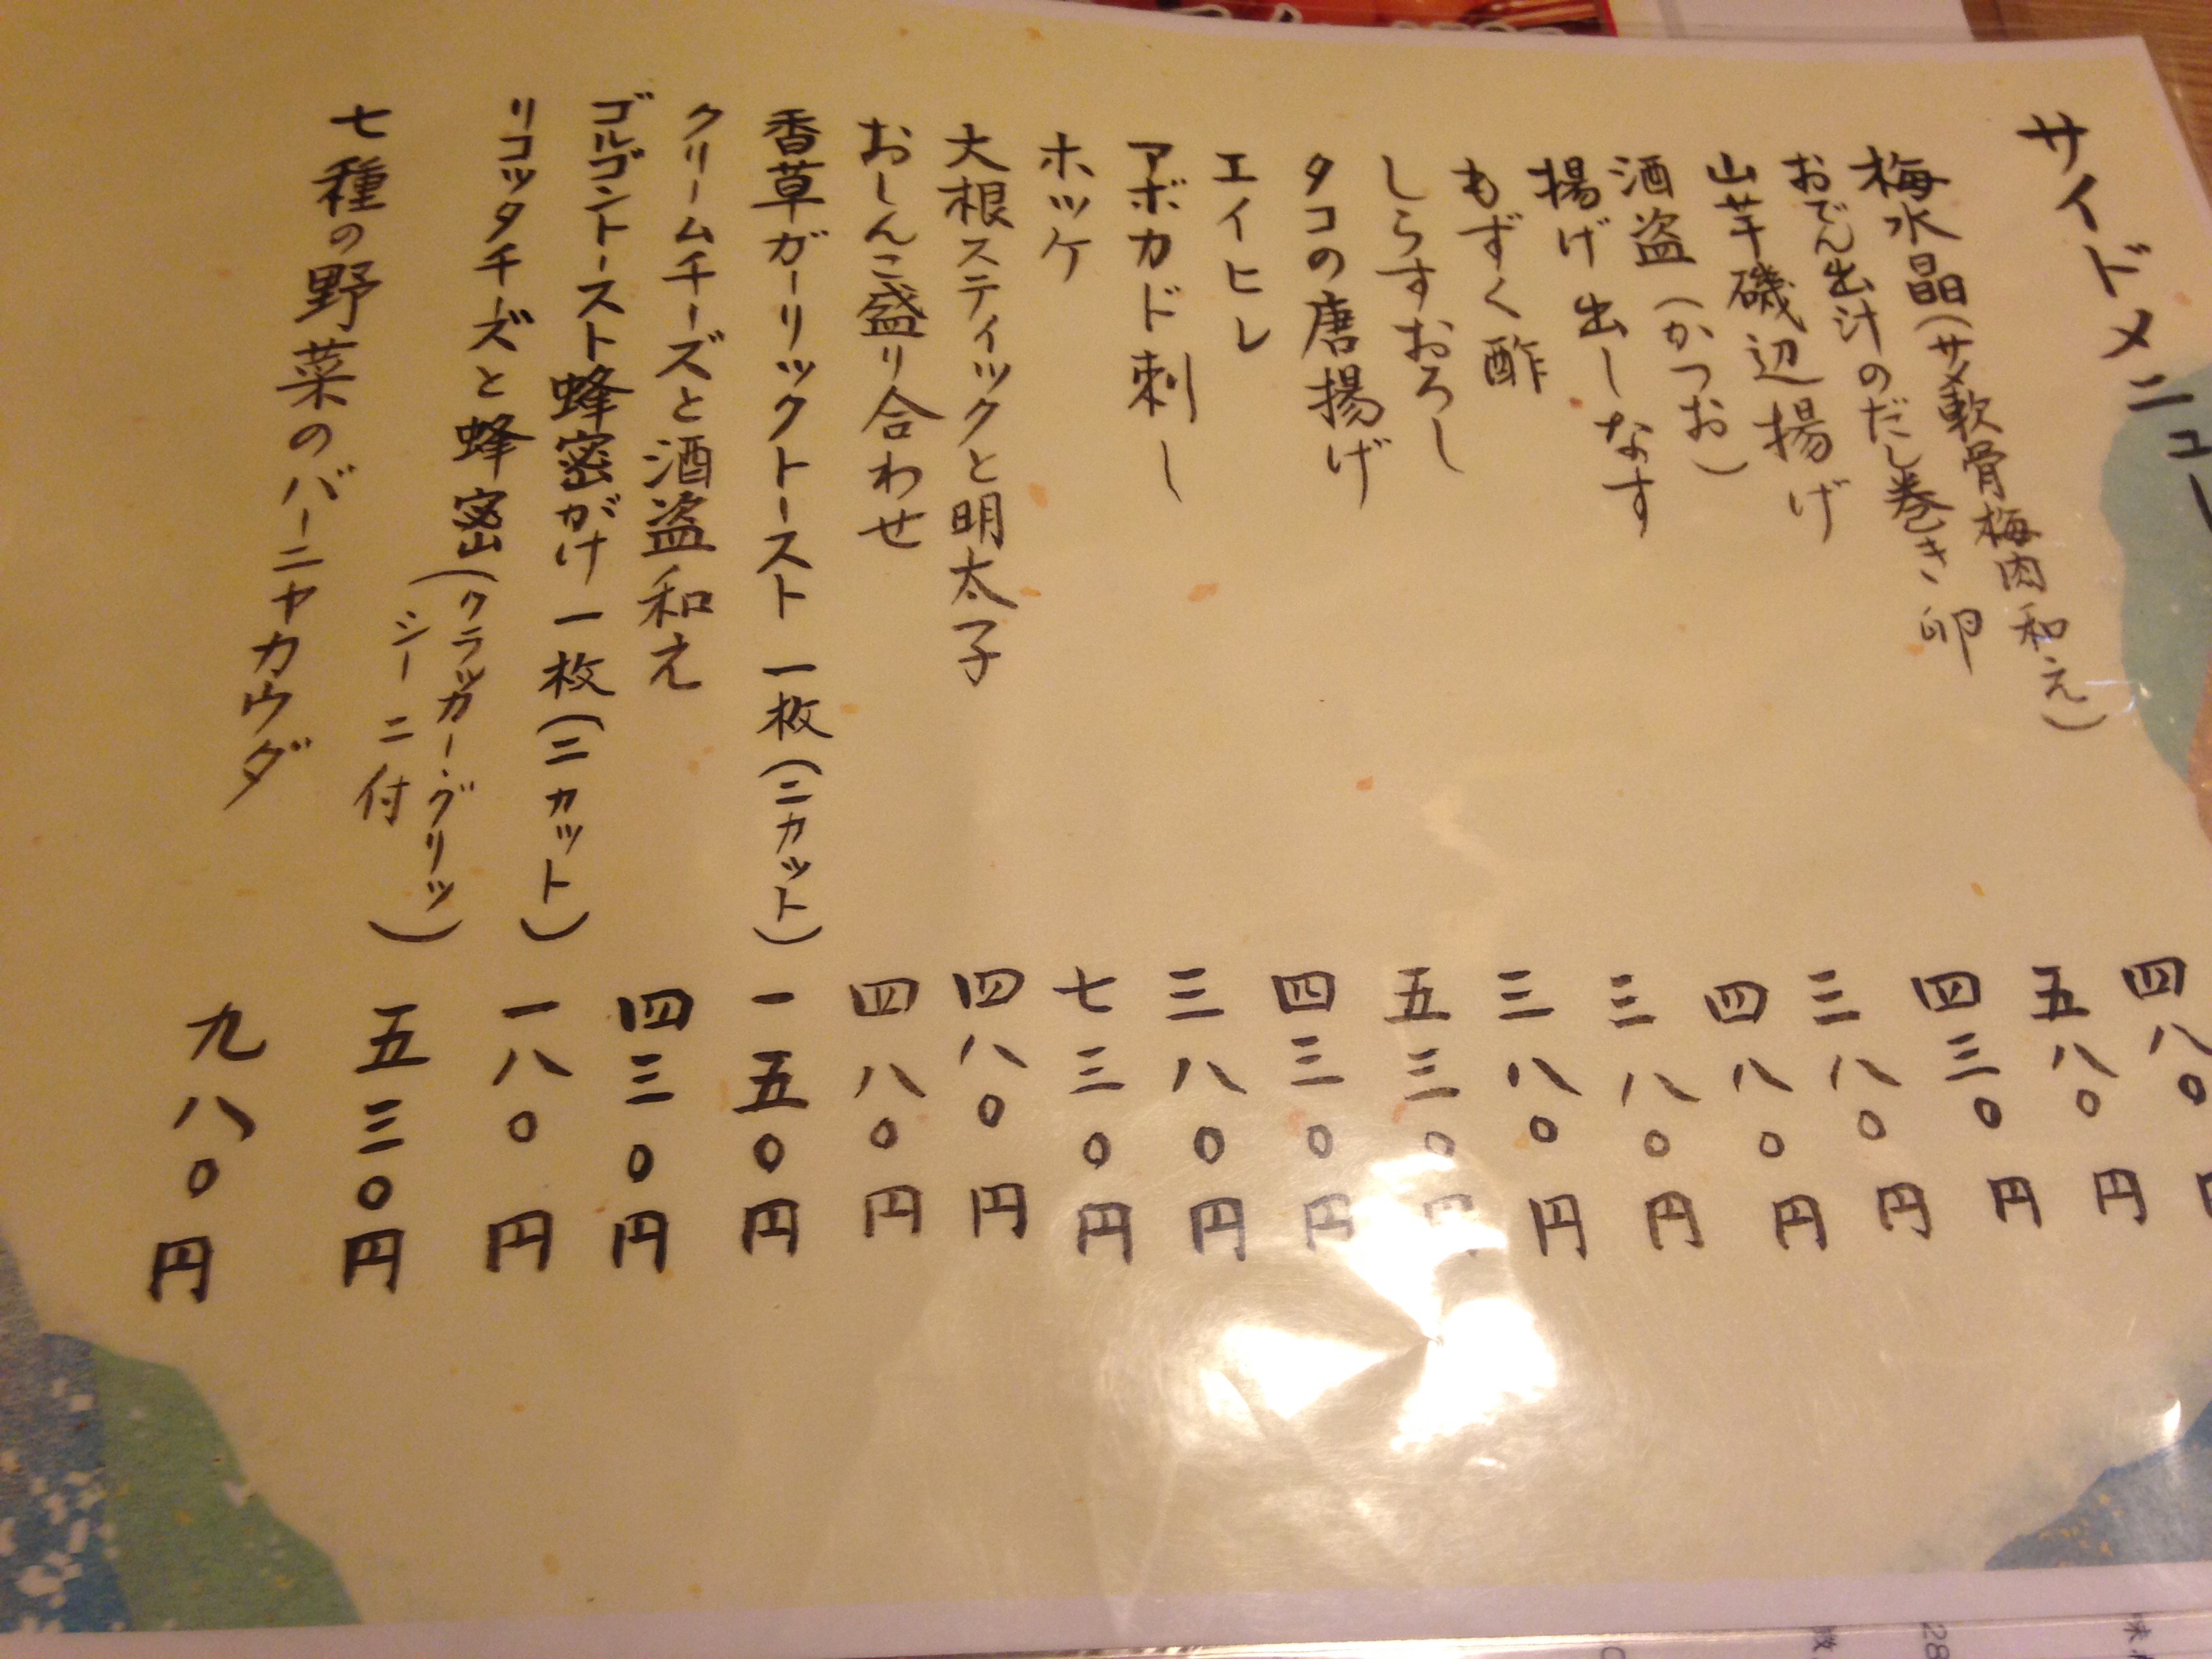 サイドメニュー
梅水晶(サメ軟骨梅肉和え) 四八〇円
おでん出汁のだし巻き卵 五八〇円
山芋磯辺揚げ 四三〇円
酒盗(かつお) 三八〇円
揚げ出しなす 四八〇円
もずく酢 三八〇円
しらすおろし 三八〇円
タコの唐揚げ 五三〇円
エイヒレ 四三〇円
アボカド刺し 三八〇円
ホッケ 七三〇円
大根スティックと明太子 四八〇円
おしんこ盛り合わせ 四八〇円
香草ガーリックトースト 一枚(二カット) 一五〇円
クリームチーズと酒盗和え 四三〇円
ゴルゴントースト蜂蜜がけ一枚(二カット) 一八〇円
リコッタチーズと蜂蜜(クラッカー・グリッ
シーニ付) 五三〇円
七種の野菜のバーニャカウダ 九八〇円
28